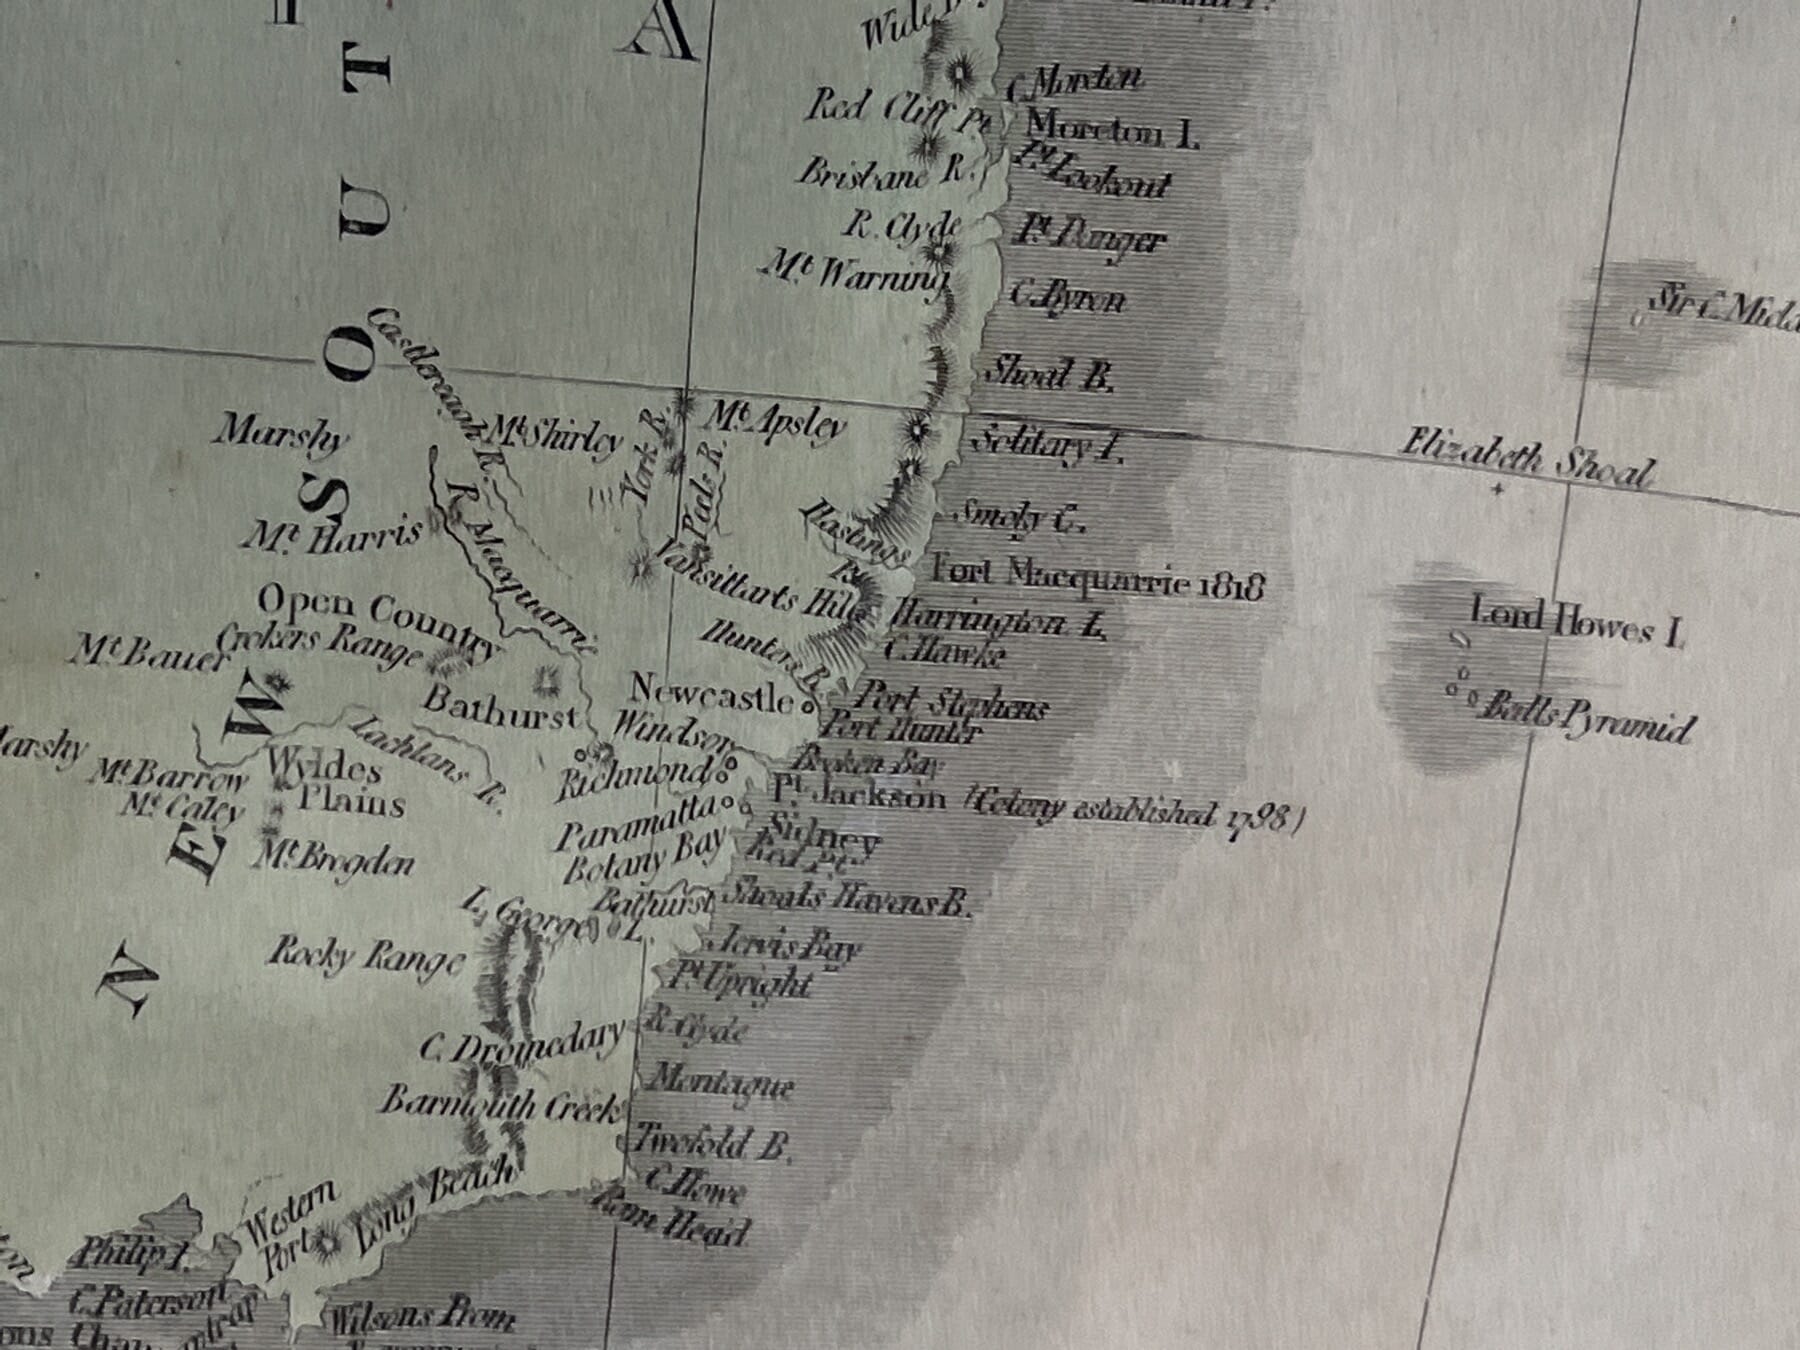 A
Wide
C. Moreton
Red Cliff Pt
Moreton I.
Pt Lookout
Brisbane R.
R. Clyde
Pt Danger
Mt Warning
C. Byron
Sir C. Midd
Castlereagh R.
Shoal B.
Marshy
Mt Shirley
York R.
Mt Apsley
Peels R.
Solitary I.
Elizabeth Shoal
Mt Harris
R. Macquarrie
Hastings
Smoky C.
Vansittarts Hills
Port Macquarrie 1818
Open Country
Crokers Range
Mt Bauer
Hunters R.
Harrington L.
C. Hawke
Lord Howes I.
Balls Pyramid
Bathurst
Newcastle
Port Stephens
Port Hunter
Windsor
Broken Bay
Marshy
Lachlans R.
Mt Barrow
Wyldes
Plains
Mt Caley
Richmond
Pt Jackson (Colony established 1798)
Paramatta
Sidney
Mt Brogden
Botany Bay
Red Pt
L. George
Bathurst
L.
Shoals Havens B.
Rocky Range
Jervis Bay
Pt Upright
C. Dromedary
R. Clyde
Montague
Barmouth Creek
Twofold B.
C. Howe
Ram Head
Long Beach
Western
Port
Philip I.
C. Paterson
Wilsons Prom
NEW SOUT